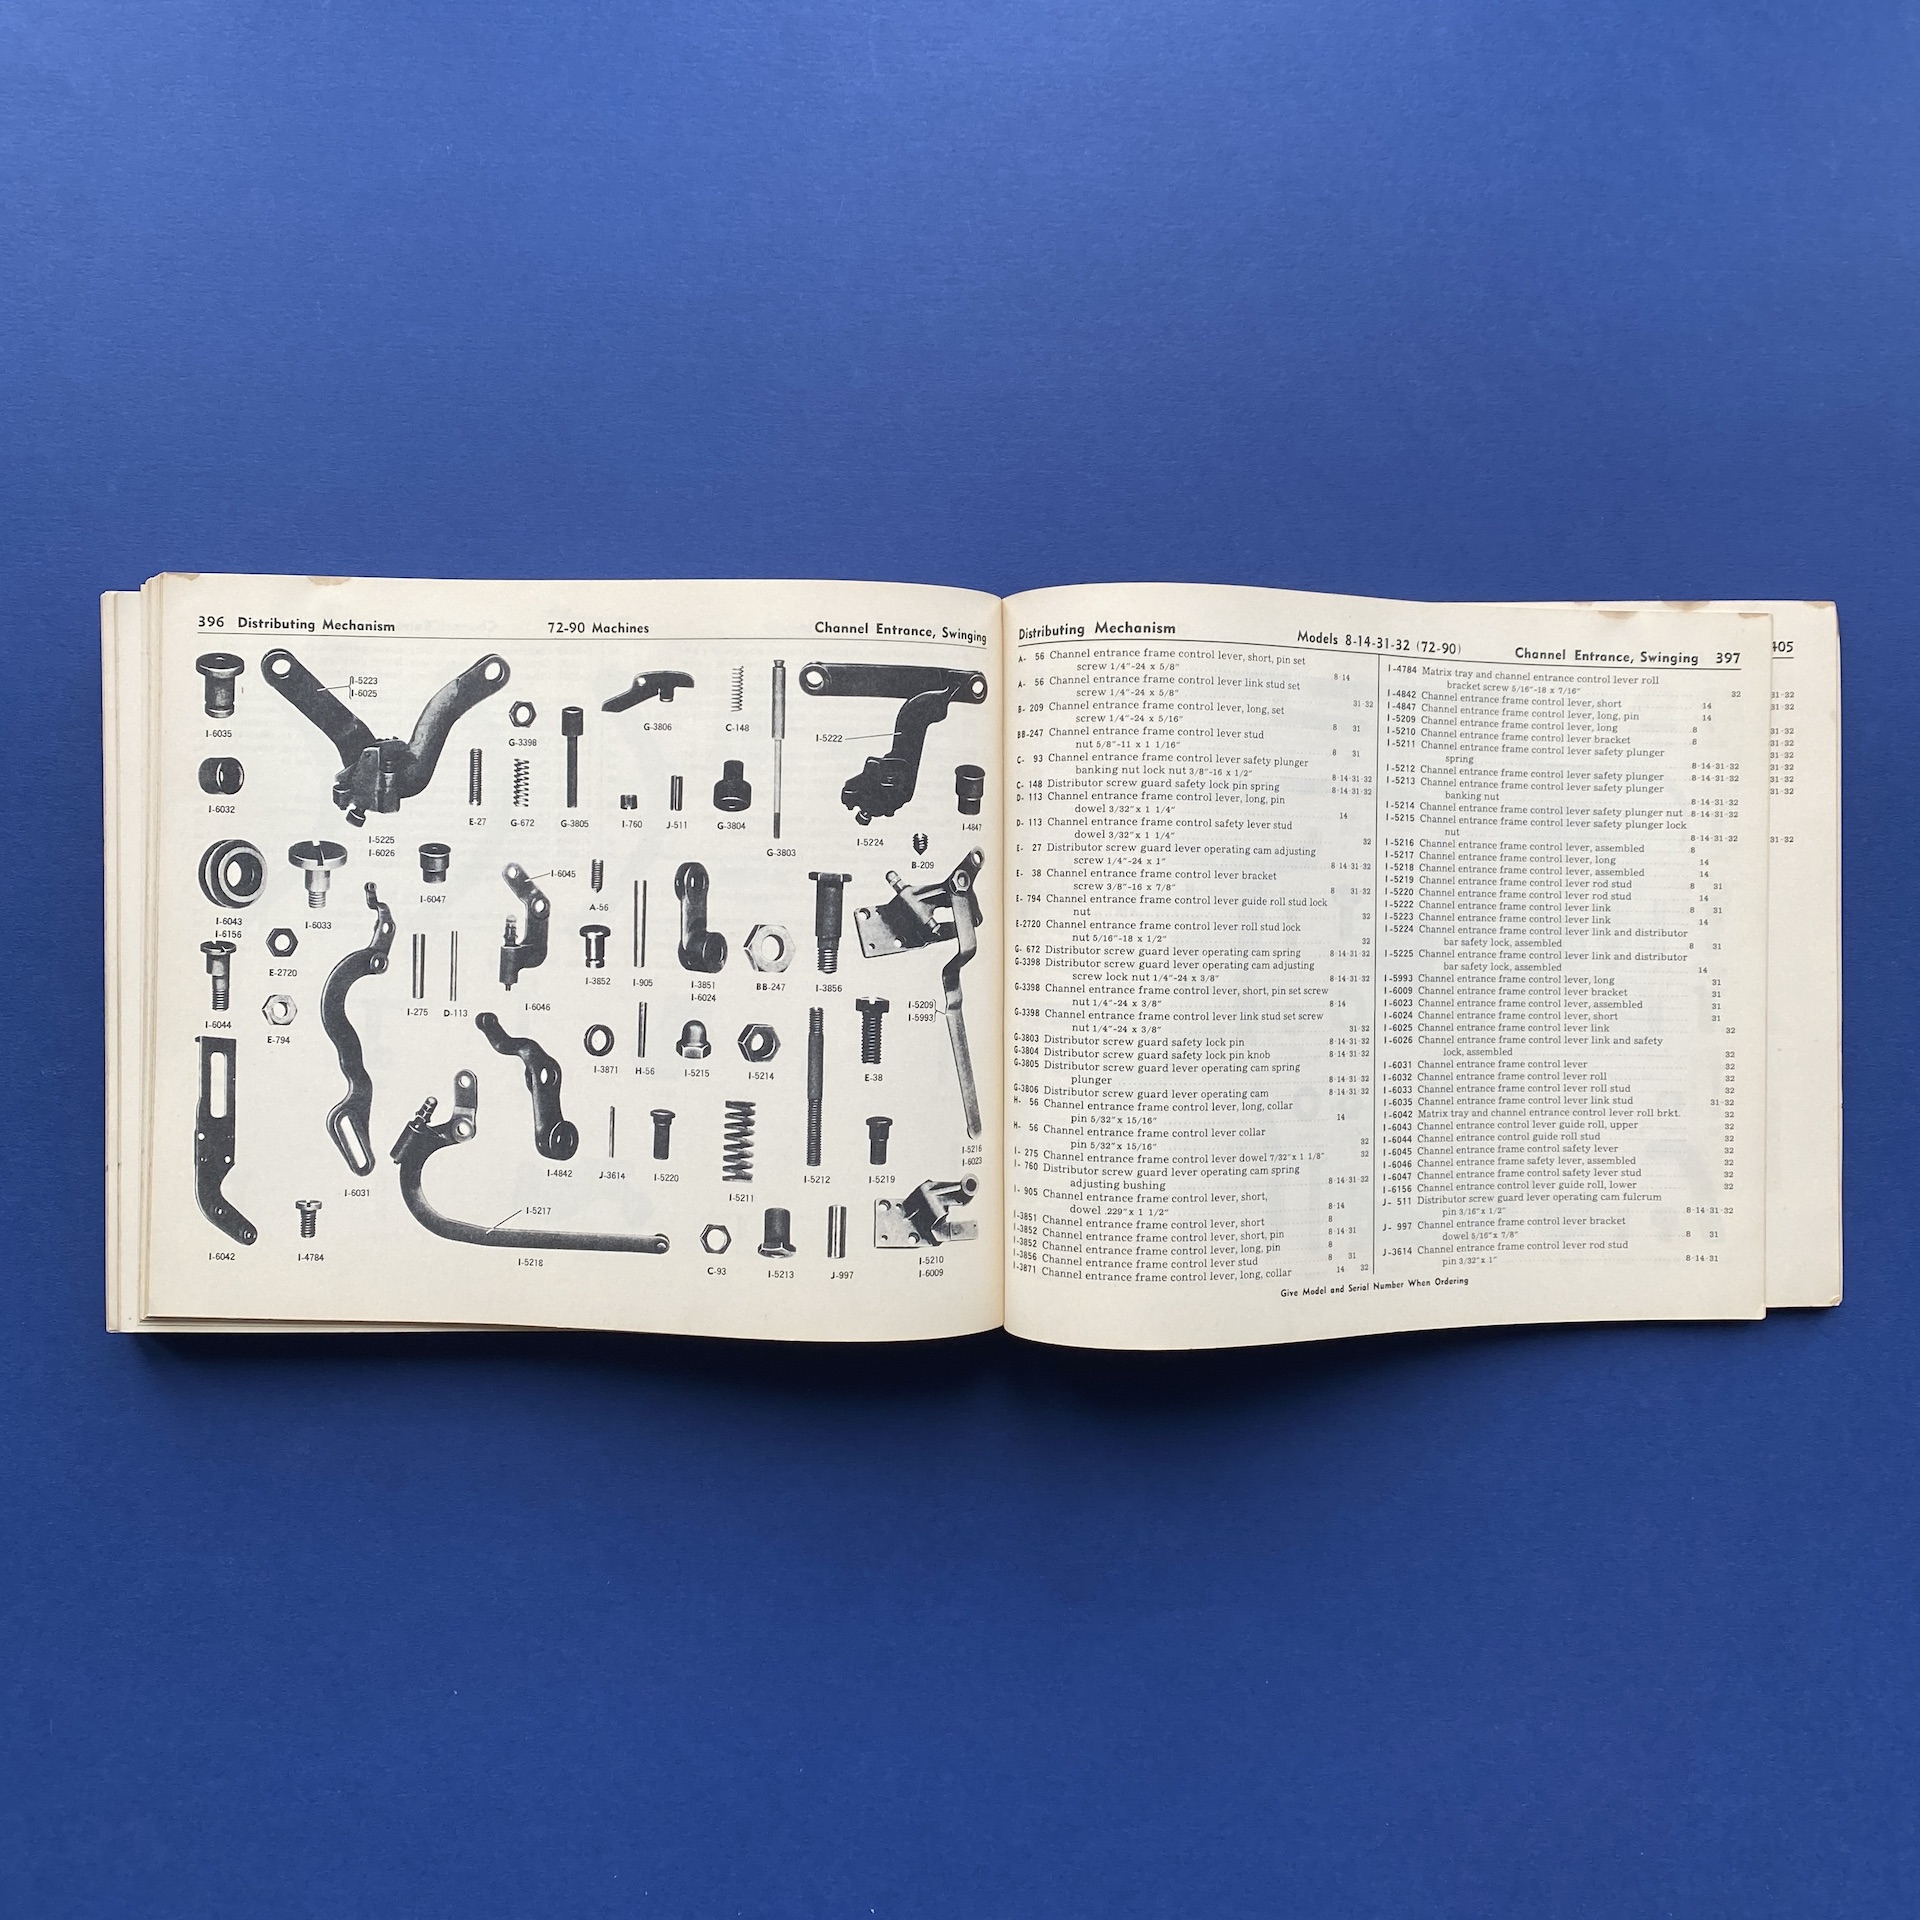 396 Distributing Mechanism
72-90 Machines
Channel Entrance, Swinging
I-6035
I-5223
I-6025
G-3398
G-3806
C-148
I-5222
I-6032
E-27
G-672
G-3805
I-760
J-511
G-3804
G-3803
I-5224
I-4847
I-5225
I-6026
B-209
I-6043
I-6156
I-6033
I-6047
I-6045
A-56
E-2720
I-3852
I-905
I-3851
I-6024
BB-247
I-3856
I-6044
E-794
I-275
D-113
I-6046
I-5209
I-5993
I-3871
H-56
I-5215
I-5214
E-38
I-6031
I-4842
J-3614
I-5220
I-5211
I-5212
I-5219
I-5216
I-6023
I-6042
I-4784
I-5217
I-5218
C-93
I-5213
J-997
I-5210
I-6009
Distributing Mechanism
Models 8-14-31-32 (72-90)
Channel Entrance, Swinging 397
A- 56 Channel entrance frame control lever, short, pin set
screw 1/4"-24 x 5/8" 8·14
A- 56 Channel entrance frame control lever link stud set
screw 1/4"-24 x 5/8" 31·32
B- 209 Channel entrance frame control lever, long, set
screw 1/4"-24 x 5/16" 8 31
BB-247 Channel entrance frame control lever stud
nut 5/8"-11 x 1 1/16" 8 31
C- 93 Channel entrance frame control lever safety plunger
banking nut lock nut 3/8"-16 x 1/2" 8·14·31·32
C- 148 Distributor screw guard safety lock pin spring 8·14·31·32
D- 113 Channel entrance frame control lever, long, pin
dowel 3/32" x 1 1/4" 14
D- 113 Channel entrance frame control safety lever stud
dowel 3/32" x 1 1/4" 32
E- 27 Distributor screw guard lever operating cam adjusting
screw 1/4"-24 x 1" 8·14·31·32
E- 38 Channel entrance frame control lever bracket
screw 3/8"-16 x 7/8" 8 31·32
E- 794 Channel entrance frame control lever guide roll stud lock
nut 32
E-2720 Channel entrance frame control lever roll stud lock
nut 5/16"-18 x 1/2" 32
G- 672 Distributor screw guard lever operating cam spring 8·14·31·32
G-3398 Distributor screw guard lever operating cam adjusting
screw lock nut 1/4"-24 x 3/8" 8·14·31·32
G-3398 Channel entrance frame control lever, short, pin set screw
nut 1/4"-24 x 3/8" 8·14
G-3398 Channel entrance frame control lever link stud set screw
nut 1/4"-24 x 3/8" 31·32
G-3803 Distributor screw guard safety lock pin 8·14·31·32
G-3804 Distributor screw guard safety lock pin knob 8·14·31·32
G-3805 Distributor screw guard lever operating cam spring
plunger 8·14·31·32
G-3806 Distributor screw guard lever operating cam 8·14·31·32
H- 56 Channel entrance frame control lever, long, collar
pin 5/32" x 15/16" 14
H- 56 Channel entrance frame control lever collar
pin 5/32" x 15/16" 32
I- 275 Channel entrance frame control lever dowel 7/32" x 1 1/8" 32
I- 760 Distributor screw guard lever operating cam spring
adjusting bushing 8·14·31·32
I- 905 Channel entrance frame control lever, short,
dowel .229" x 1 1/2" 8·14
I-3851 Channel entrance frame control lever, short 8
I-3852 Channel entrance frame control lever, short, pin 8·14·31
I-3852 Channel entrance frame control lever, long, pin 8
I-3856 Channel entrance frame control lever stud 8 31
I-3871 Channel entrance frame control lever, long, collar 14 32
I-4784 Matrix tray and channel entrance control lever roll
bracket screw 5/16"-18 x 7/16" 32
I-4842 Channel entrance frame control lever, short 14
I-4847 Channel entrance frame control lever, long, pin 14
I-5209 Channel entrance frame control lever, long 8
I-5210 Channel entrance frame control lever bracket 8
I-5211 Channel entrance frame control lever safety plunger
spring 8·14·31·32
I-5212 Channel entrance frame control lever safety plunger 8·14·31·32
I-5213 Channel entrance frame control lever safety plunger
banking nut 8·14·31·32
I-5214 Channel entrance frame control lever safety plunger nut 8·14·31·32
I-5215 Channel entrance frame control lever safety plunger lock
nut 8·14·31·32
I-5216 Channel entrance frame control lever, assembled 8
I-5217 Channel entrance frame control lever, long 14
I-5218 Channel entrance frame control lever, assembled 14
I-5219 Channel entrance frame control lever rod stud 8 31
I-5220 Channel entrance frame control lever rod stud 14
I-5222 Channel entrance frame control lever link 8 31
I-5223 Channel entrance frame control lever link 14
I-5224 Channel entrance frame control lever link and distributor
bar safety lock, assembled 8 31
I-5225 Channel entrance frame control lever link and distributor
bar safety lock, assembled 14
I-5993 Channel entrance frame control lever, long 31
I-6009 Channel entrance frame control lever bracket 31
I-6023 Channel entrance frame control lever, assembled 31
I-6024 Channel entrance frame control lever, short 31
I-6025 Channel entrance frame control lever link 32
I-6026 Channel entrance frame control lever link and safety
lock, assembled 32
I-6031 Channel entrance frame control lever 32
I-6032 Channel entrance frame control lever roll 32
I-6033 Channel entrance frame control lever roll stud 32
I-6035 Channel entrance frame control lever link stud 31·32
I-6042 Matrix tray and channel entrance control lever roll brkt. 32
I-6043 Channel entrance control lever guide roll, upper 32
I-6044 Channel entrance control guide roll stud 32
I-6045 Channel entrance frame control safety lever 32
I-6046 Channel entrance frame safety lever, assembled 32
I-6047 Channel entrance frame control safety lever stud 32
I-6156 Channel entrance control lever guide roll, lower 32
J- 511 Distributor screw guard lever operating cam fulcrum
pin 3/16" x 1/2" 8·14·31·32
J- 997 Channel entrance frame control lever bracket
dowel 5/16" x 7/8" 8 31
J-3614 Channel entrance frame control lever rod stud
pin 3/32" x 1" 8·14·31
Give Model and Serial Number When Ordering
405
31-32
31-32
31-32
31-32
31-32
31-32
31-32
31-32